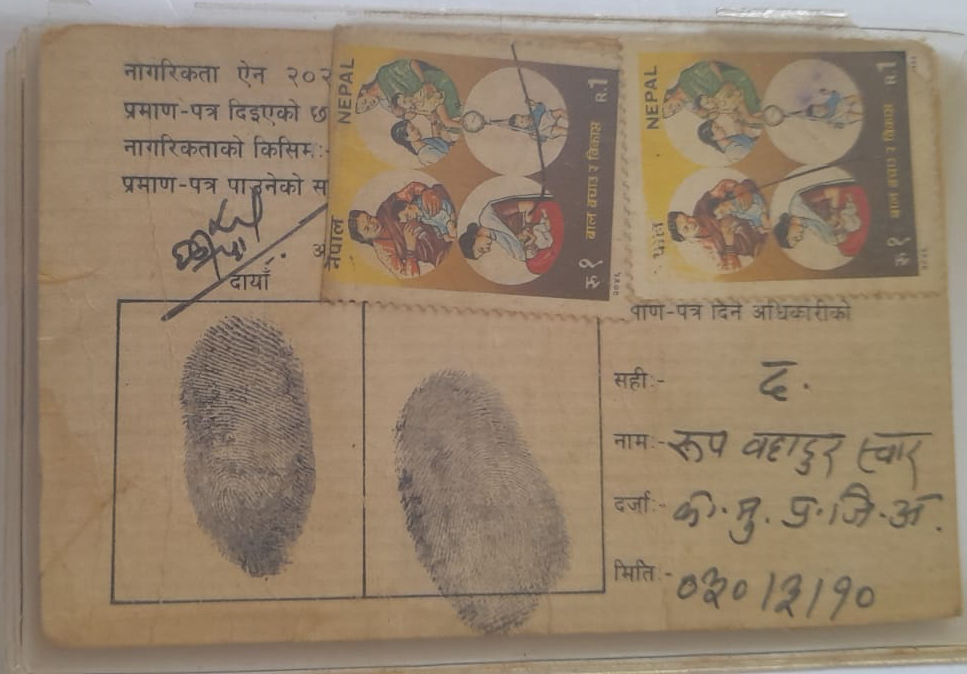 नागरिकता ऐन २०२
प्रमाण-पत्र दिइएको छ
नागरिकताको किसिमः-
प्रमाण-पत्र पाउनेको स
दायाँ
NEPAL
नेपाल
R.1
बाल बचाउ र विकास
रु १
NEPAL
पाल
R.1
बाल बचाउ र विकास
रु १
पाण-पत्र दिने अधिकारीको
सहीः- द.
नामः- रूप बहादुर स्वार
दर्जाः- का. मु. प्र. जि. अ.
मितिः-